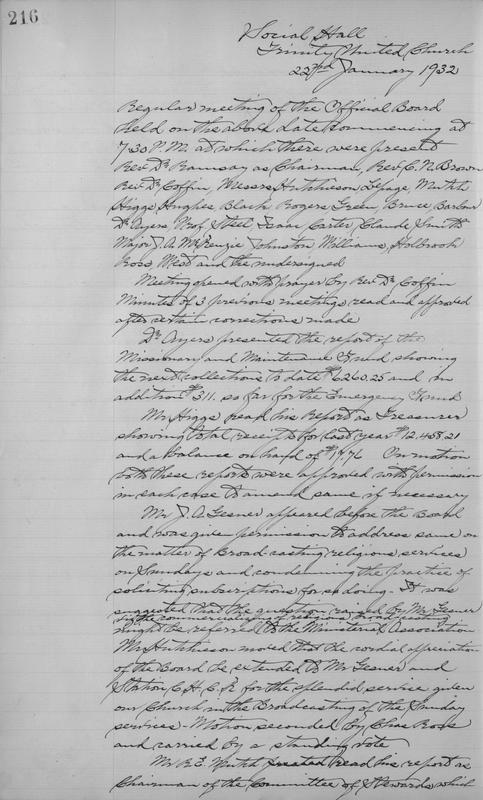 216
Social Hall
Trinity United Church
22nd January 1932
Regular meeting of the Official Board
held on the above date commencing at
7.30 P.M. at which there were present
Rev Dr Ramsay as Chairman, Rev. C. N. Brown
Rev. Dr Coffin, Messrs Hutchieson Lepage, Mutch
Higgs Hughes Black Rogers Green, Bruce Barbour
Dr Ayers, Prof. Steel Isaac Carter, Claude Smith
Major J. A. McKenzie Johnston Williams, Holbrook
Ross West and the undersigned
Meeting opened with prayer by Rev Dr Coffin
Minutes of 3 previous meetings read and approved
after certain corrections made
Dr Ayers presented the report of the
Missionary and Maintenance Fund showing
the next collections to date $6260.25 and in
addition $311. so far for the Emergency Fund
Mr Higgs read his Report as Treasurer
showing total receipts for last year $12.458.21
and a balance on hand of On motion
both these reports were approved with permission
in each case to amend same if necessary
Mr J. A. Gesner appeared before the Board
and was given permission to address same on
the matter of Broadcasting religious services
on Sundays and condemning the practice of
soliciting subscriptions for so doing. It was
suggested that the question raised by Mr Gesner
in the commercializing of religious broadcasting
might be referred to the Ministerial Association
Mr Hutchieson moved that the cordial appreciation
of the Board be extended to Mr Gesner and
Station C.H.C.K. for the splendid service given
our Church in the Broadcasting of the Sunday
services - Motion seconded by Chas Ross
and carried by a standing vote
Mr R. E. Mutch read his report as
Chairman of the Committee of Stewards which